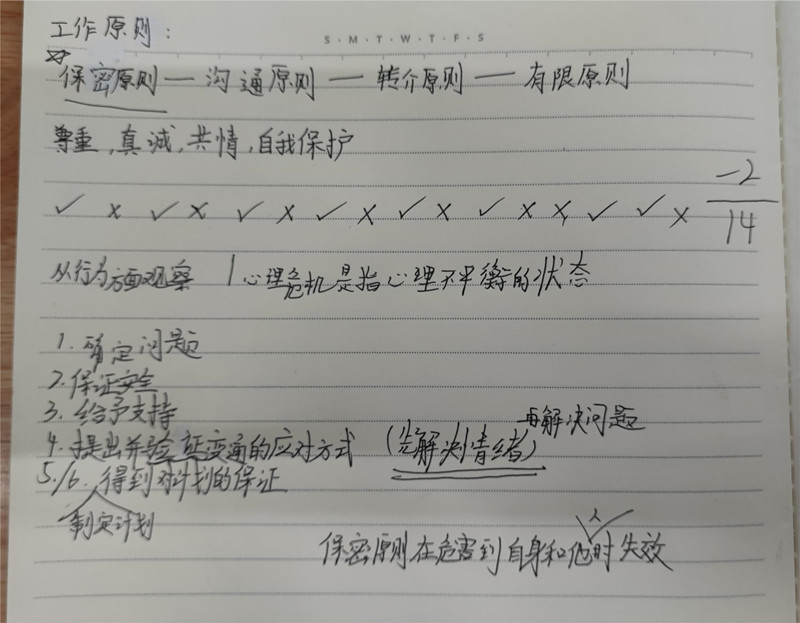 工作原则:
S·M·T·W·T·F·S
☆保密原则—沟通原则—转介原则—有限原则
尊重,真诚,共情,自我保护
✓ × ✓ × ✓ × ✓ × ✓ × ✓ × × ✓ ✓ × -2/14
从行为方面观察 | 心理危机是指心理不平衡的状态
1.确定问题
2.保证安全
3.给予支持
4.提出并验证变通的应对方式 (先解决情绪) 再解决问题
5./6.得到对计划的保证
制定计划
保密原则在危害到自身和他人时失效